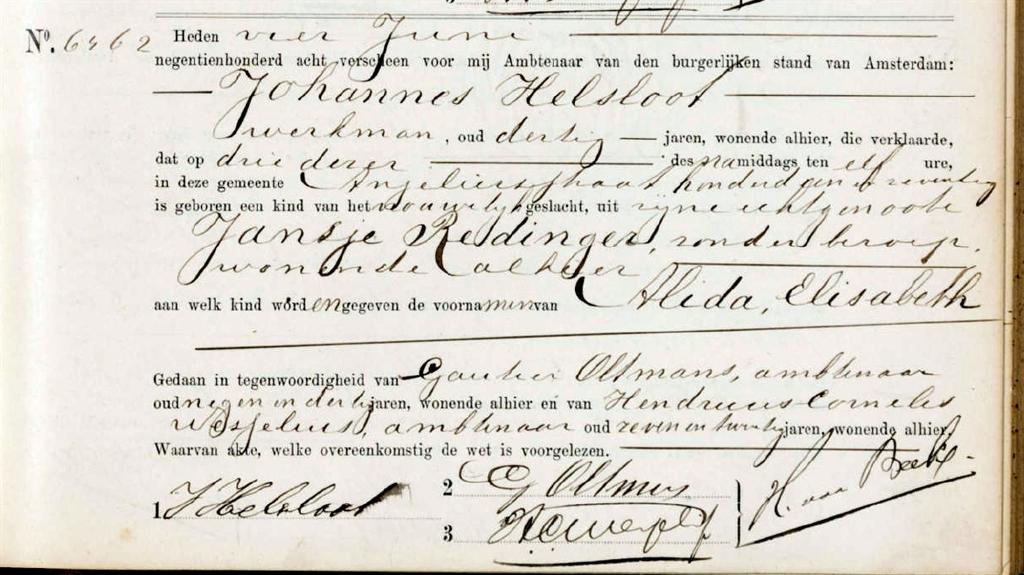 Nº. 6462 Heden vier Juni
negentienhonderd acht verscheen voor mij Ambtenaar van den burgerlijken stand van Amsterdam:
Johannes Helsloot
werkman, oud dertig jaren, wonende alhier, die verklaarde,
dat op drie dezer des namiddags ten elf ure,
in deze gemeente honderd een en zeventig
is geboren een kind van het vrouwelijk geslacht, uit zijne echtgenoote
Jansje Redinger, zonder beroep,
wonende alhier
aan welk kind worden gegeven de voornamen van Alida, Elisabeth
Gedaan in tegenwoordigheid van Oltmans, ambtenaar
oud negen en dertig jaren, wonende alhier en van Hendricus Cornelis
Wesselius, ambtenaar oud zeven en twintig jaren, wonende alhier.
Waarvan akte, welke overeenkomstig de wet is voorgelezen.
1 J Helsloot
2 G Oltmans
3
H. van